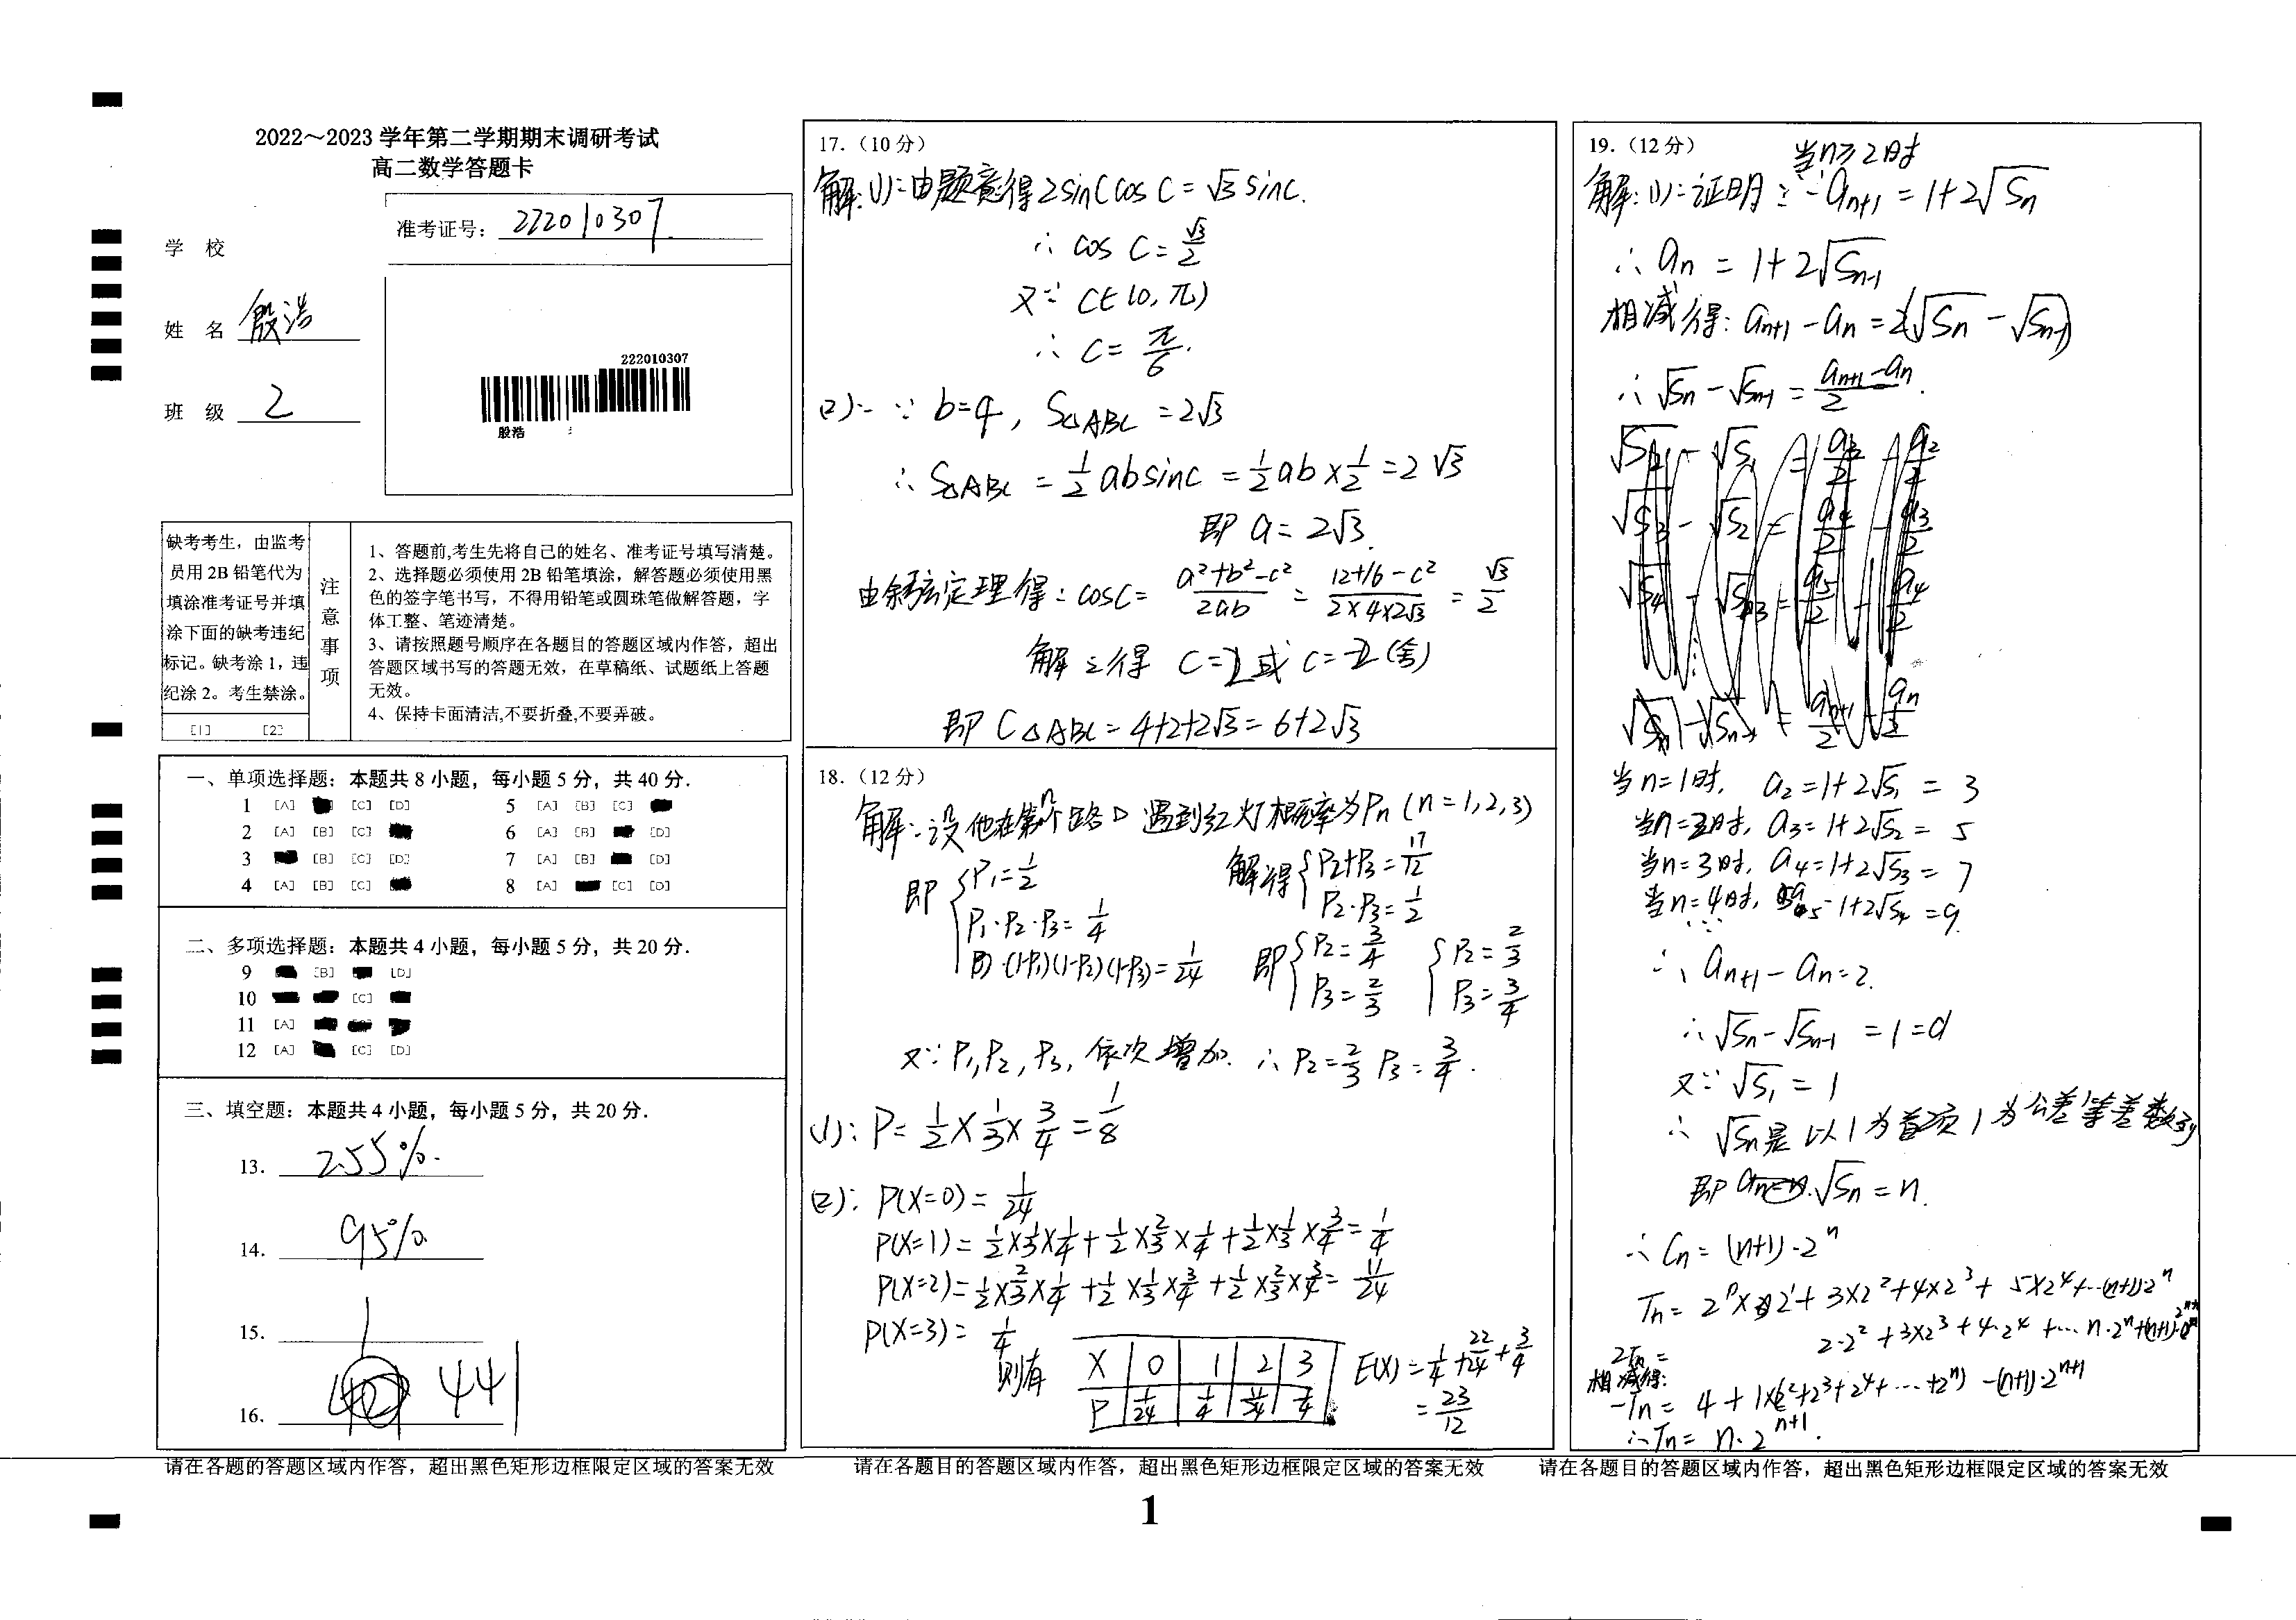 2022～2023 学年第二学期期末调研考试
高二数学答题卡
准考证号: 222010307
学 校
姓 名 殷浩
班 级 2
222010307
殷浩
缺考考生，由监考
员用 2B 铅笔代为
填涂准考证号并填
涂下面的缺考违纪
标记。缺考涂 1，违
纪涂 2。考生禁涂。
[1] [2]
注意事项
1、答题前,考生先将自己的姓名、准考证号填写清楚。
2、选择题必须使用 2B 铅笔填涂，解答题必须使用黑
色的签字笔书写，不得用铅笔或圆珠笔做解答题，字
体工整、笔迹清楚。
3、请按照题号顺序在各题目的答题区域内作答，超出
答题区域书写的答题无效，在草稿纸、试题纸上答题
无效。
4、保持卡面清洁,不要折叠,不要弄破。
一、单项选择题：本题共 8 小题，每小题 5 分，共 40 分.
1 [A] [C] [D] 5 [A] [B] [C]
2 [A] [B] [C] 6 [A] [B] [D]
3 [B] [C] [D] 7 [A] [B] [D]
4 [A] [B] [C] 8 [A] [C] [D]
二、多项选择题：本题共 4 小题，每小题 5 分，共 20 分.
9 [B] [D]
10 [C]
11 [A]
12 [A] [C] [D]
三、填空题：本题共 4 小题，每小题 5 分，共 20 分.
13. 2.55%.
14. 95%
15. 1
16. 441
请在各题的答题区域内作答，超出黑色矩形边框限定区域的答案无效
17.（10 分）
解:(1):由题意得2sinCcosC=√3sinC.
∴ cos C = √3/2
又∵ C∈(0,π)
∴ C = π/6.
(2):∵ b=4, S△ABC = 2√3
∴ S△ABC = 1/2 absinC = 1/2 ab × 1/2 = 2√3
即 a = 2√3.
由余弦定理得: cosC = (a²+b²-c²)/2ab = (12+16-c²)/(2×4×2√3) = √3/2
解之得 C=2或 C=-2(舍)
即 C△ABC = 4+2+2√3 = 6+2√3
18.（12 分）
解:设他在第n个路口遇到红灯概率为Pn (n=1,2,3)
即 { P1=1/2
P1·P2·P3=1/4
(1-P1)(1-P2)(1-P3)=1/24
解得 { P2+P3=17/12
P2·P3=1/2
即 { P2=3/4
P3=2/3
{ P2=2/3
P3=3/4
又∵ P1,P2,P3,依次增加. ∴ P2=2/3 P3=3/4.
(1): P= 1/2×1/3×3/4=1/8
(2): P(X=0)=1/24
P(X=1)=1/2×1/3×1/4+1/2×2/3×1/4+1/2×1/3×3/4=1/4
P(X=2)=1/2×2/3×1/4+1/2×1/3×3/4+1/2×2/3×3/4=11/24
P(X=3)=1/4
则有
X 0 1 2 3
P 1/24 1/4 11/24 1/4
E(X)=1/4+22/24+3/4
=23/12
请在各题目的答题区域内作答，超出黑色矩形边框限定区域的答案无效
19.（12 分）
当n≥2时
解:(1):证明:∵an+1=1+2√Sn
∴ an=1+2√Sn-1
相减得: an+1-an=2(√Sn-√Sn-1)
∴ √Sn-√Sn-1=(an+1-an)/2.
当n=1时, a2=1+2√S1=3
当n=2时, a3=1+2√S2=5
当n=3时, a4=1+2√S3=7
当n=4时, a5=1+2√S4=9.
∴ an+1-an=2.
∴ √Sn-√Sn-1=1=d
又∵ √S1=1
∴ √Sn是以1为首项1为公差等差数列
即 √Sn=n.
∴ Cn=(n+1)·2ⁿ
Tn=2×2¹+3×2²+4×2³+5×2⁴+…(n+1)·2ⁿ
2Tn= 2·2²+3×2³+4·2⁴+…n·2ⁿ+(n+1)·2ⁿ⁺¹
相减得:
-Tn=4+1×(2²+2³+2⁴+…+2ⁿ)-(n+1)·2ⁿ⁺¹
∴Tn=n·2ⁿ⁺¹.
请在各题目的答题区域内作答，超出黑色矩形边框限定区域的答案无效
1